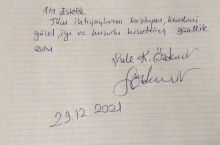 Ata Estetik
Tüm ihtiyaçlarımı karşılayan, kendimi
güzel, iyi ve huzurlu hissettiren güzellik
evim
K. Özdemir
29.12.2021